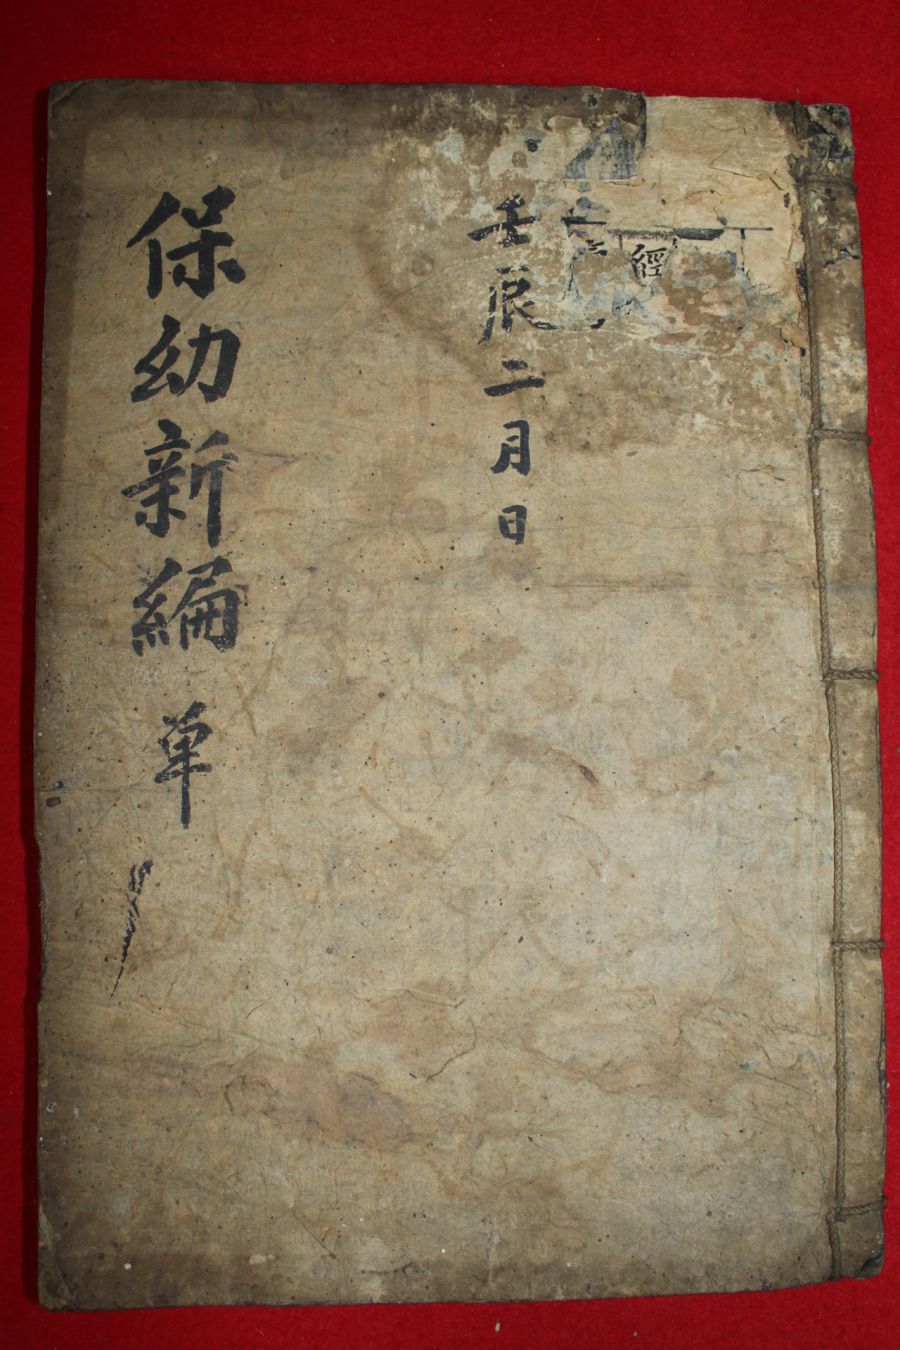 經
壬辰二月日
保幼新編 單